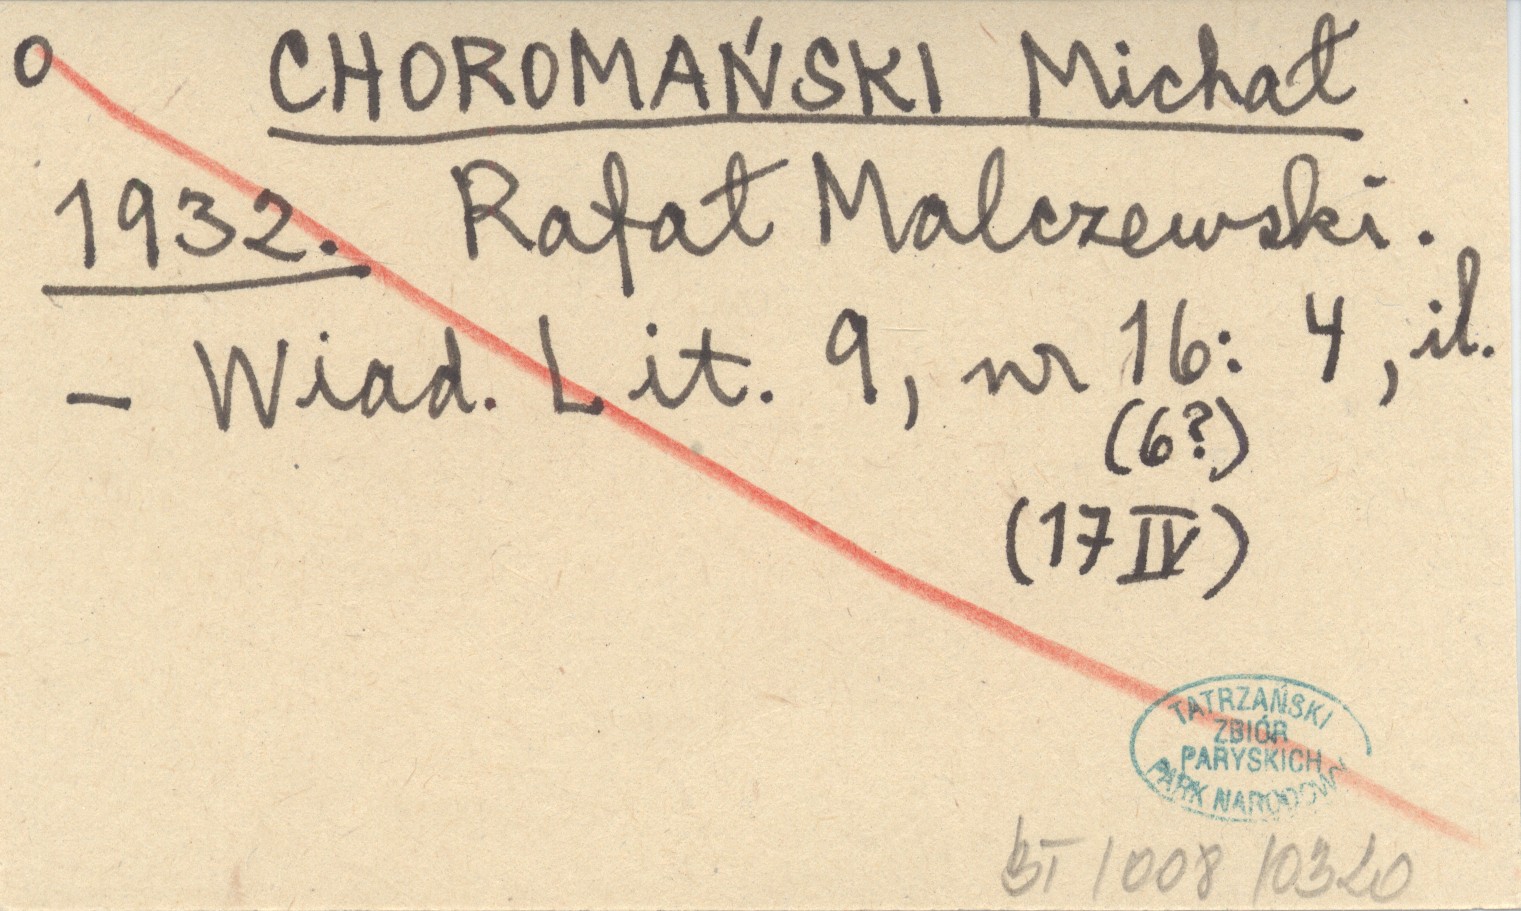 O CHOROMAŃSKI Michał
1932. Rafał Malczewski.
– Wiad. Lit. 9, nr 16: 4, il.
(6?)
(17 IV)
TATRZAŃSKI
ZBIÓR
PARYSKICH
PARK NARODOWY
BT / 008 / 0320